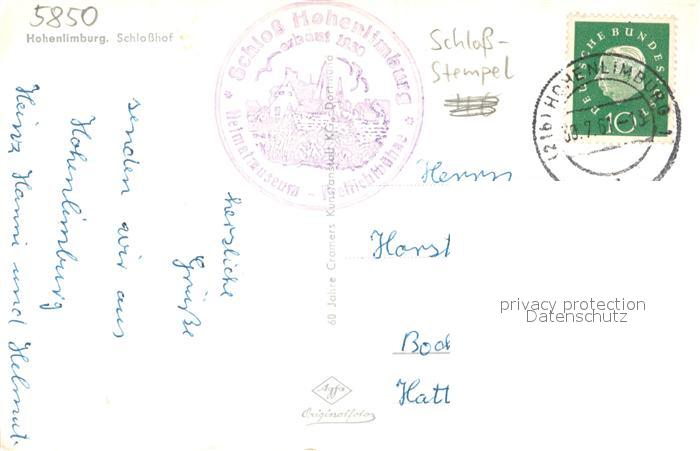 5850
Hohenlimburg. Schloßhof
Schloß Hohenlimburg
erbaut 1230
Heimatmuseum - Freilichtbühne
Schloß-
Stempel
DEUTSCHE BUNDESPOST
10
(21b) HOHENLIMBURG 1
herzliche
Grüße
senden wir aus
Hohenlimburg
Heinz Hanni und Helmut.
60 Jahre Cramers Kunstanstalt KG., Dortmund
Herrn
Horst
Boch
Hatt
privacy protection
Datenschutz
Agfa
Originalfoto